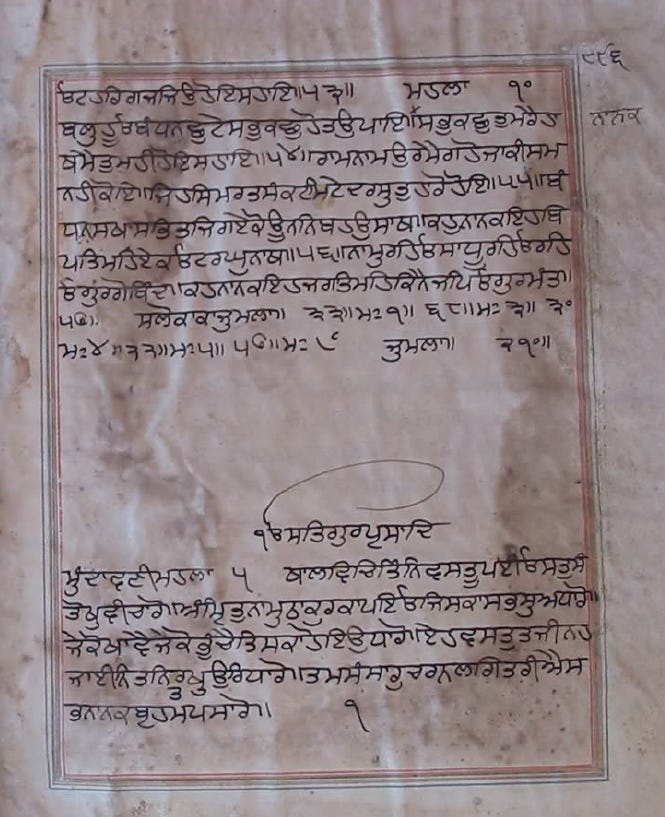 ਓਟਹਰਿਗਜਜਿਉਹੋਇਸਹਾਇ॥੫੩॥ ਮਹਲਾ ੧੦
ਬਲੁਹੂਓਬੰਧਨਛੁਟੇਸਭੁਕਛੁਹੋਤਉਪਾਇ॥ਸਭੁਕਛੁਤੁਮਰੈਹ
ਥਮੈਤੁਮਹੀਹੋਇਸਹਾਇ॥੫੪॥ਰਾਮਨਾਮਉਰਮੈਗਹੋਜਾਕੀਸਮ
ਨਹੀਕੋਇ॥ਜਿਹਸਿਮਰਤਸੰਕਟਮਿਟੇਦਰਸੁਤੁਹਰੋਹੋਇ॥੫੫॥ਬੰ
ਧਨਸਖਾਸਭਿਤਜਿਗਏਕੋਊਨਨਿਬਹਉਸਾਥ॥ਕਹੁਨਾਨਕਇਹਬਿ
ਪਤਿਮਹਿਏਕਓਟਰਘੁਨਾਥ॥੫੬॥ਨਾਮੁਰਹਿਓਸਾਧੂਰਹਿਓਰਹਿ
ਓਗੁਰੁਗੋਬਿੰਦ॥ਕਹਨਾਨਕਇਹਜਗਤਿਮਹਿਕਿਨੈਜਪਿਓਗੁਰਮੰਤਾ॥
੫੭॥ ਸਲੋਕਾਕਾਜੁਮਲਾ॥ ੩੩॥ਮਃ੧॥ ੬੮॥ਮਃ੩॥ ੩੦
ਮਃ੪॥੨੩॥ਮਃ੫॥ ੫੭॥ਮਃ ੯ ਜੁਮਲਾ॥ ੨੧੦॥
ਨਾਨਕ
ੴਸਤਿਗੁਰਪ੍ਰਸਾਦਿ
ਮੁੰਦਾਵਣੀਮਹਲਾ ੫ ਥਾਲਵਿਚਿਤਿੰਨਿਵਸਤੂਪਈਓਸਤੁਸੰ
ਤੋਖੁਵੀਚਾਰੋ॥ਅੰਮ੍ਰਿਤੁਨਾਮੁਠਾਕੁਰਕਾਪਇਓਜਿਸਕਾਸਭਸੁਅਧਾਰੋ॥
ਜੇਕੋਖਾਵੈਜੇਕੋਭੁੰਚੈਤਿਸਕਾਹੋਇਉਧਾਰੋ॥ਇਹਵਸਤੁਤਜੀਨਹ
ਜਾਈਨਿਤਨਿਤੁਰਖੁਉਰਿਧਾਰੋ॥ਤਮਸੰਸਾਰੁਚਰਨਲਾਗਿਤਰੀਐਸ
ਭਨਾਨਕਬ੍ਰਹਮਪਸਾਰੋ॥ ੧